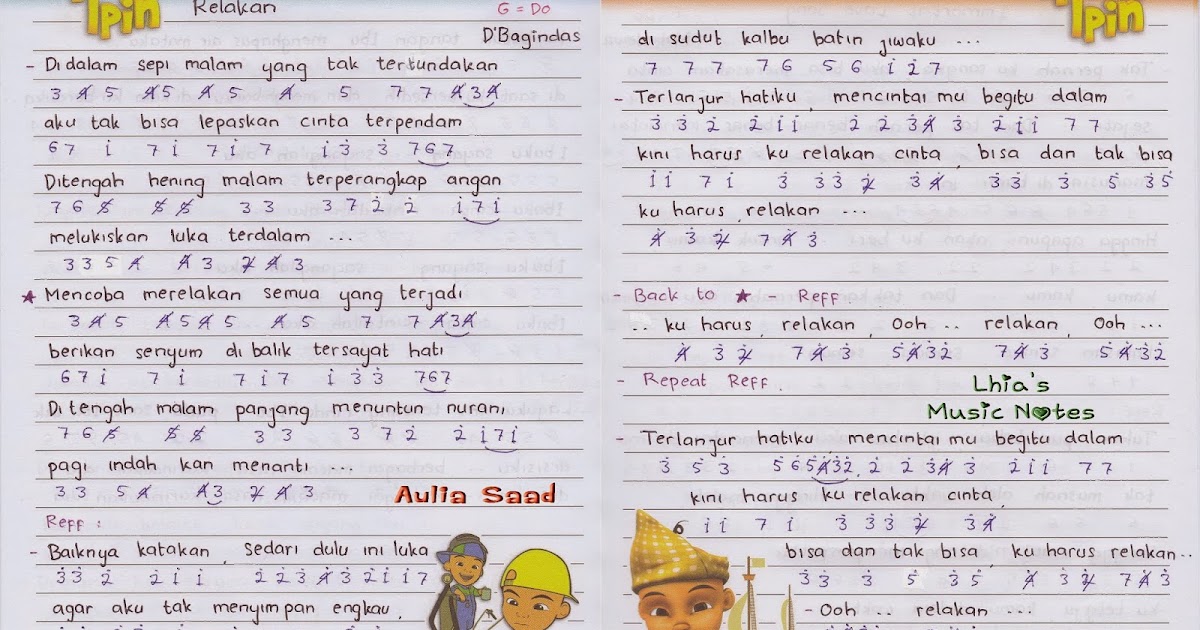 Ipin
Relakan
G = Do
D'Bagindas
- Didalam sepi malam yang tak tertundakan
3 4̸ 5 4̸5 4̸ 5 4̸ 5 7 7 4̸34̸
aku tak bisa lepaskan cinta terpendam
67 i̇ 7 i̇ 7 i̇ 7 i̇ 3̇ 3̇ 767
Ditengah hening malam terperangkap angan
7 6 5̸ 5̸ 5̸ 3 3 3 7 2̇ 2̇ i̇ 7 i̇
melukiskan luka terdalam ...
3 3 5 4̸ 4̸ 3 2̸ 4̸ 3
★ Mencoba merelakan semua yang terjadi
3 4̸ 5 4̸ 5 4̸ 5 4̸ 5 7 7 4̸34̸
berikan senyum di balik tersayat hati
6 7 i̇ 7 i̇ 7 i̇ 7 i̇ 3̇ 3̇ 767
Di tengah malam panjang menuntun nurani
7 6 5̸ 5̸ 5̸ 3 3 3 7 2̇ 2̇ i̇ 7 i̇
pagi indah kan menanti ....
3 3 5 4̸ 4̸3 2̸ 4̸ 3
Aulia Saad
Reff :
- Baiknya katakan, sedari dulu ini luka
3̇ 3̇ 2̇ 2̇ i̇ i̇ 2̇ 2̇ 3̇ 4̸̇ 3̇ 2̇ i̇ i̇ 7
agar aku tak menyimpan engkau
Ipin
di sudut kalbu batin jiwaku ...
7 7 7 7 6 5 6 i̇ 2̇ 7
- Terlanjur hatiku mencintai mu begitu dalam
3̇ 3̇ 2̇ 2̇ i̇ i̇ 2̇ 2̇ 3̇4̸̇ 3̇ 2̇ i̇ i̇ 7 7
kini harus ku relakan cinta, bisa dan tak bisa
i̇ i̇ 7 i̇ 3̇ 3̇ 3̇ 2̸̇ 3̇ 4̸̇ 3̇ 3̇ 3̇ 5̇ 3̇ 5̇
ku harus relakan ...
4̸̇ 3̇ 2̸̇ 7 4̸̇ 3̇
- Back to ★ - Reff.
.. ku harus relakan, Ooh .. relakan, Ooh ...
4̸̇ 3̇ 2̸̇ 7 4̸̇ 3̇ 5̇4̸̇3̇2̇ 7 4̸̇ 3̇ 5̇4̸̇3̇2̇
- Repeat Reff.
Lhia's
Music Notes
- Terlanjur hatiku mencintai mu begitu dalam
3̇ 5̇ 3̇ 5̇ 6̇ 5̇4̸̇3̇2̇ 2̇ 2̇ 3̇4̸̇ 3̇ 2̇ i̇ i̇ 7 7
kini harus ku relakan cinta,
6 i̇ i̇ 7 i̇ 3̇ 3̇ 3̇ 2̸̇ 3̇ 4̸̇
bisa dan tak bisa, ku harus relakan..
3̇ 3̇ 3̇ 5̇ 3̇ 5̇ 4̸̇ 3̇ 2̸̇ 7 4̸̇ 3̇
- Ooh relakan ...